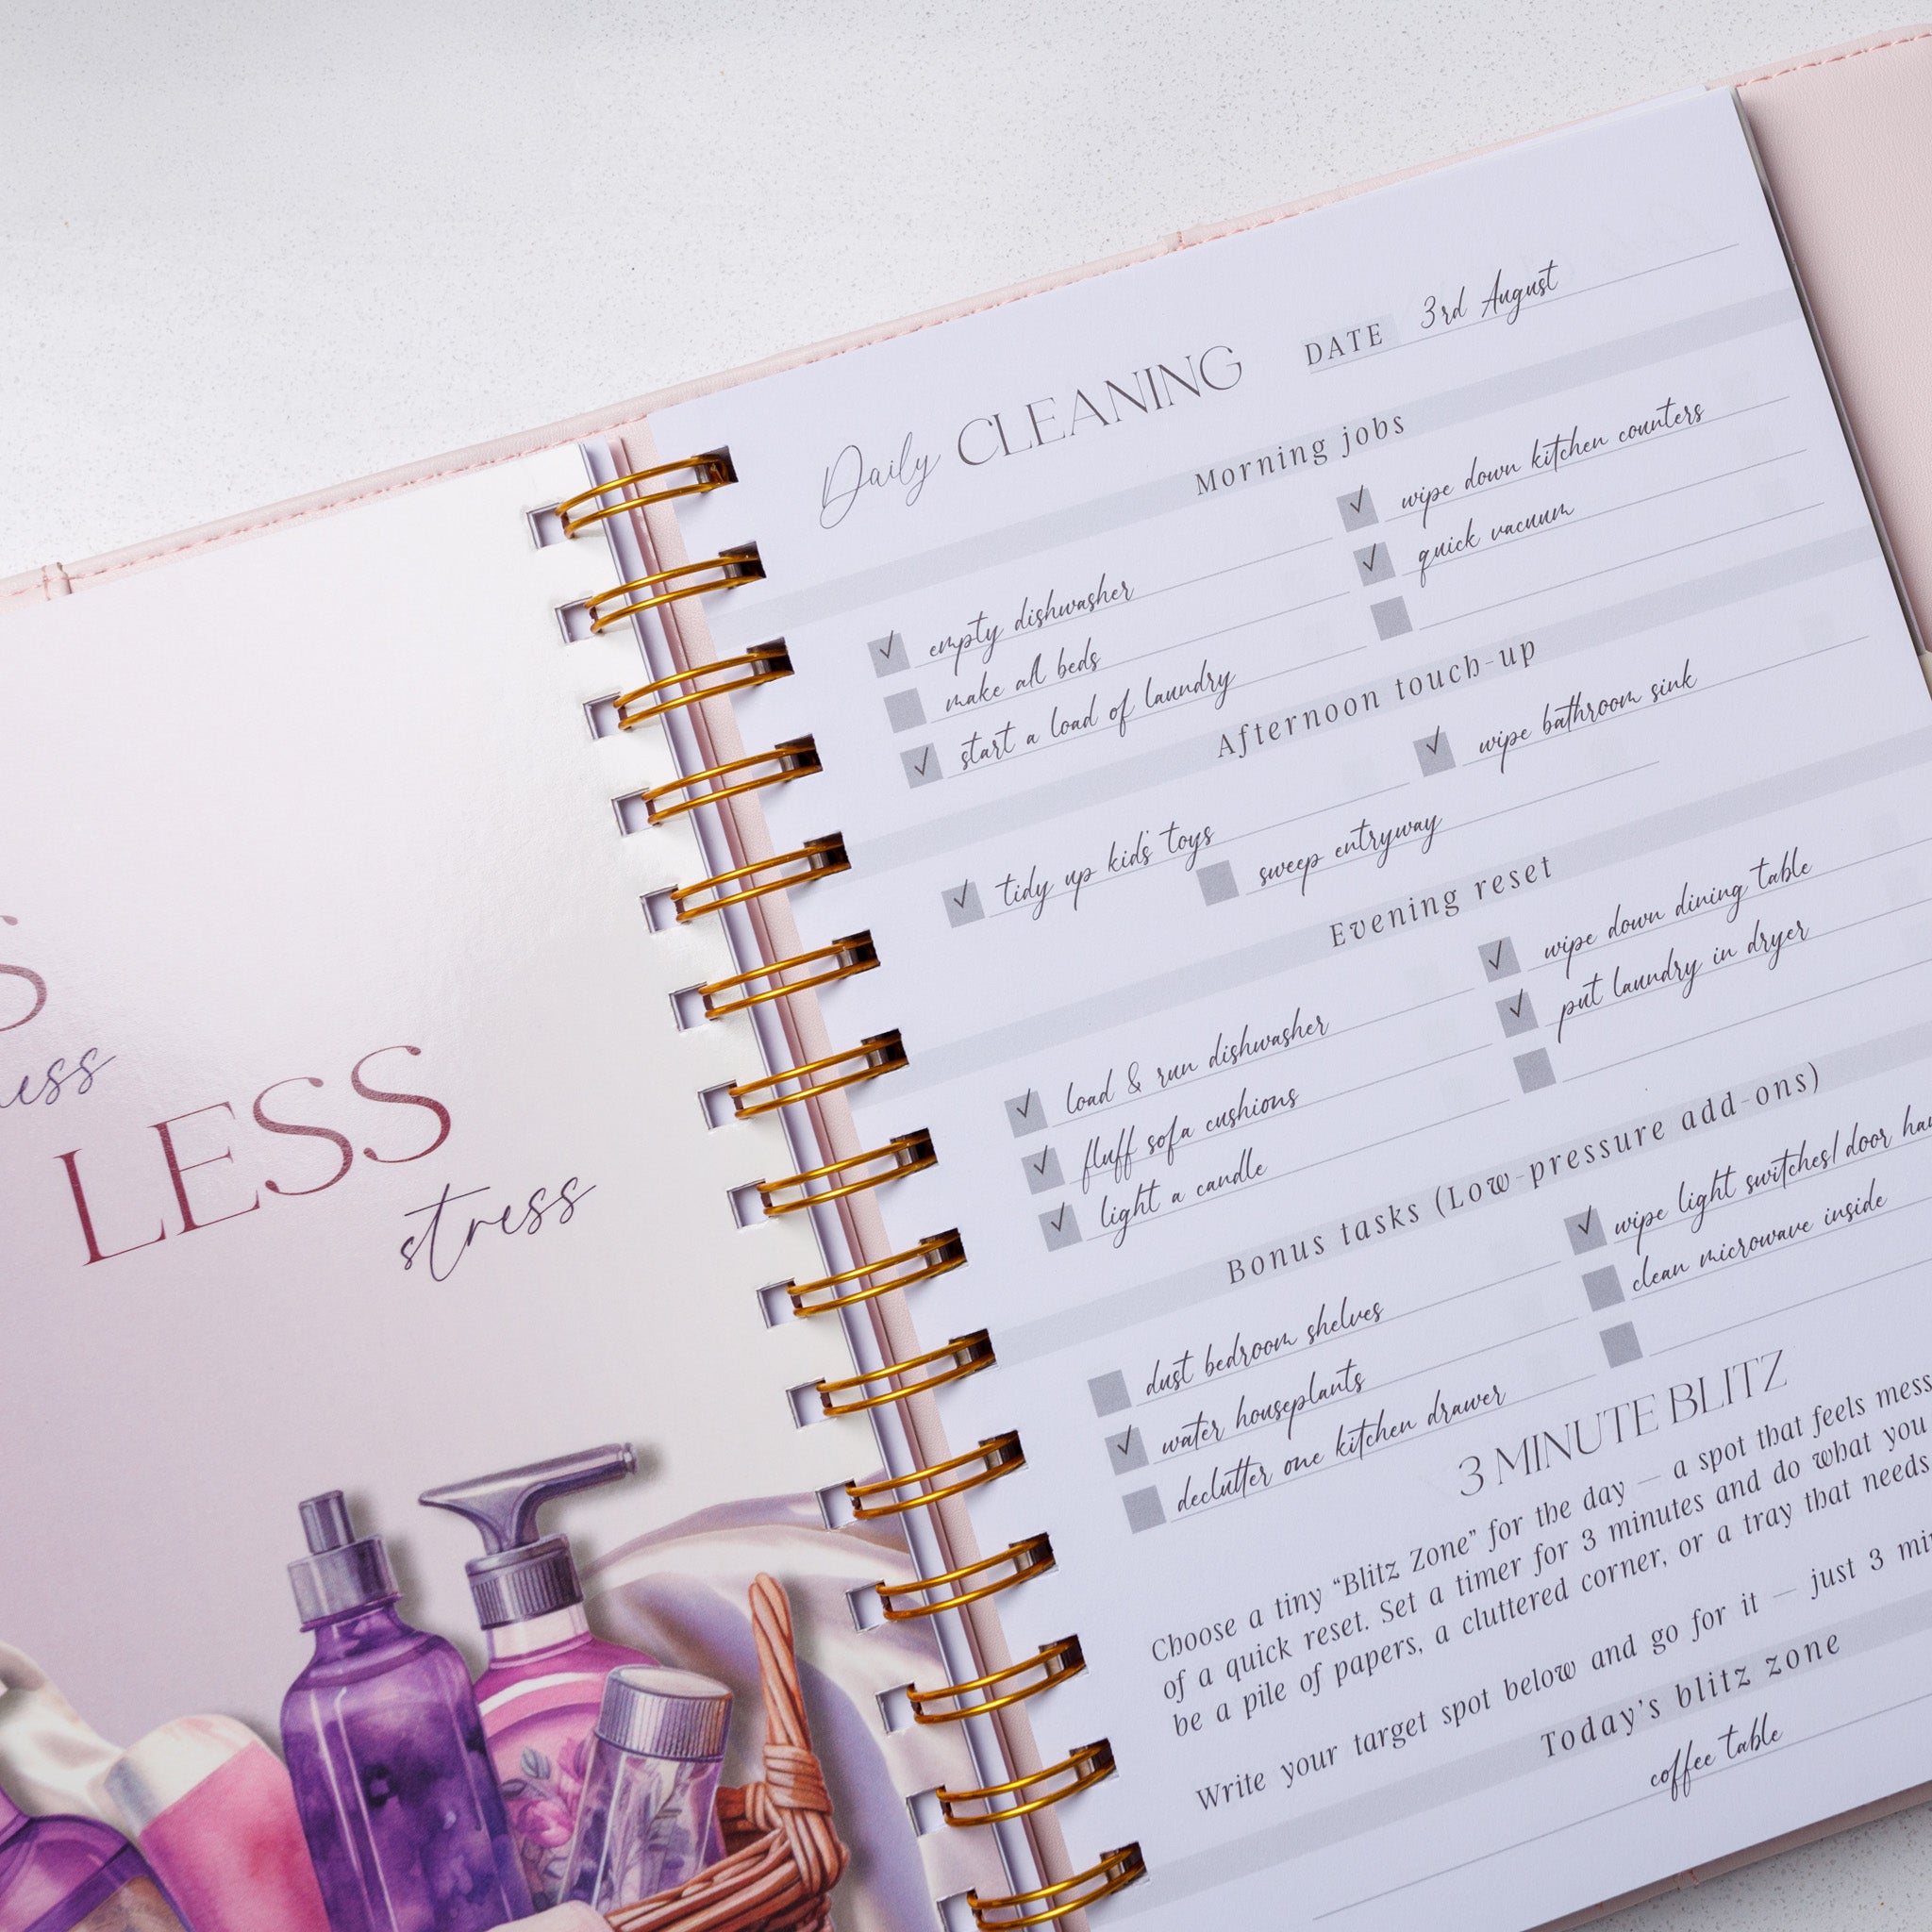 S
ess
LESS
stress
Daily CLEANING
DATE 3rd August
Morning jobs
✓ empty dishwasher
make all beds
✓ start a load of laundry
✓ wipe down kitchen counters
✓ quick vacuum
Afternoon touch-up
✓ tidy up kids' toys
✓ wipe bathroom sink
sweep entryway
Evening reset
✓ load & run dishwasher
✓ fluff sofa cushions
✓ light a candle
✓ wipe down dining table
✓ put laundry in dryer
Bonus tasks (Low-pressure add-ons)
dust bedroom shelves
✓ water houseplants
declutter one kitchen drawer
✓ wipe light switches/door
clean microwave inside
3 MINUTE BLITZ
Choose a tiny “Blitz Zone” for the day — a spot that feels
of a quick reset. Set a timer for 3 minutes and do what you
be a pile of papers, a cluttered corner, or a tray that needs
Write your target spot below and go for it — just 3
Today's blitz zone
coffee table